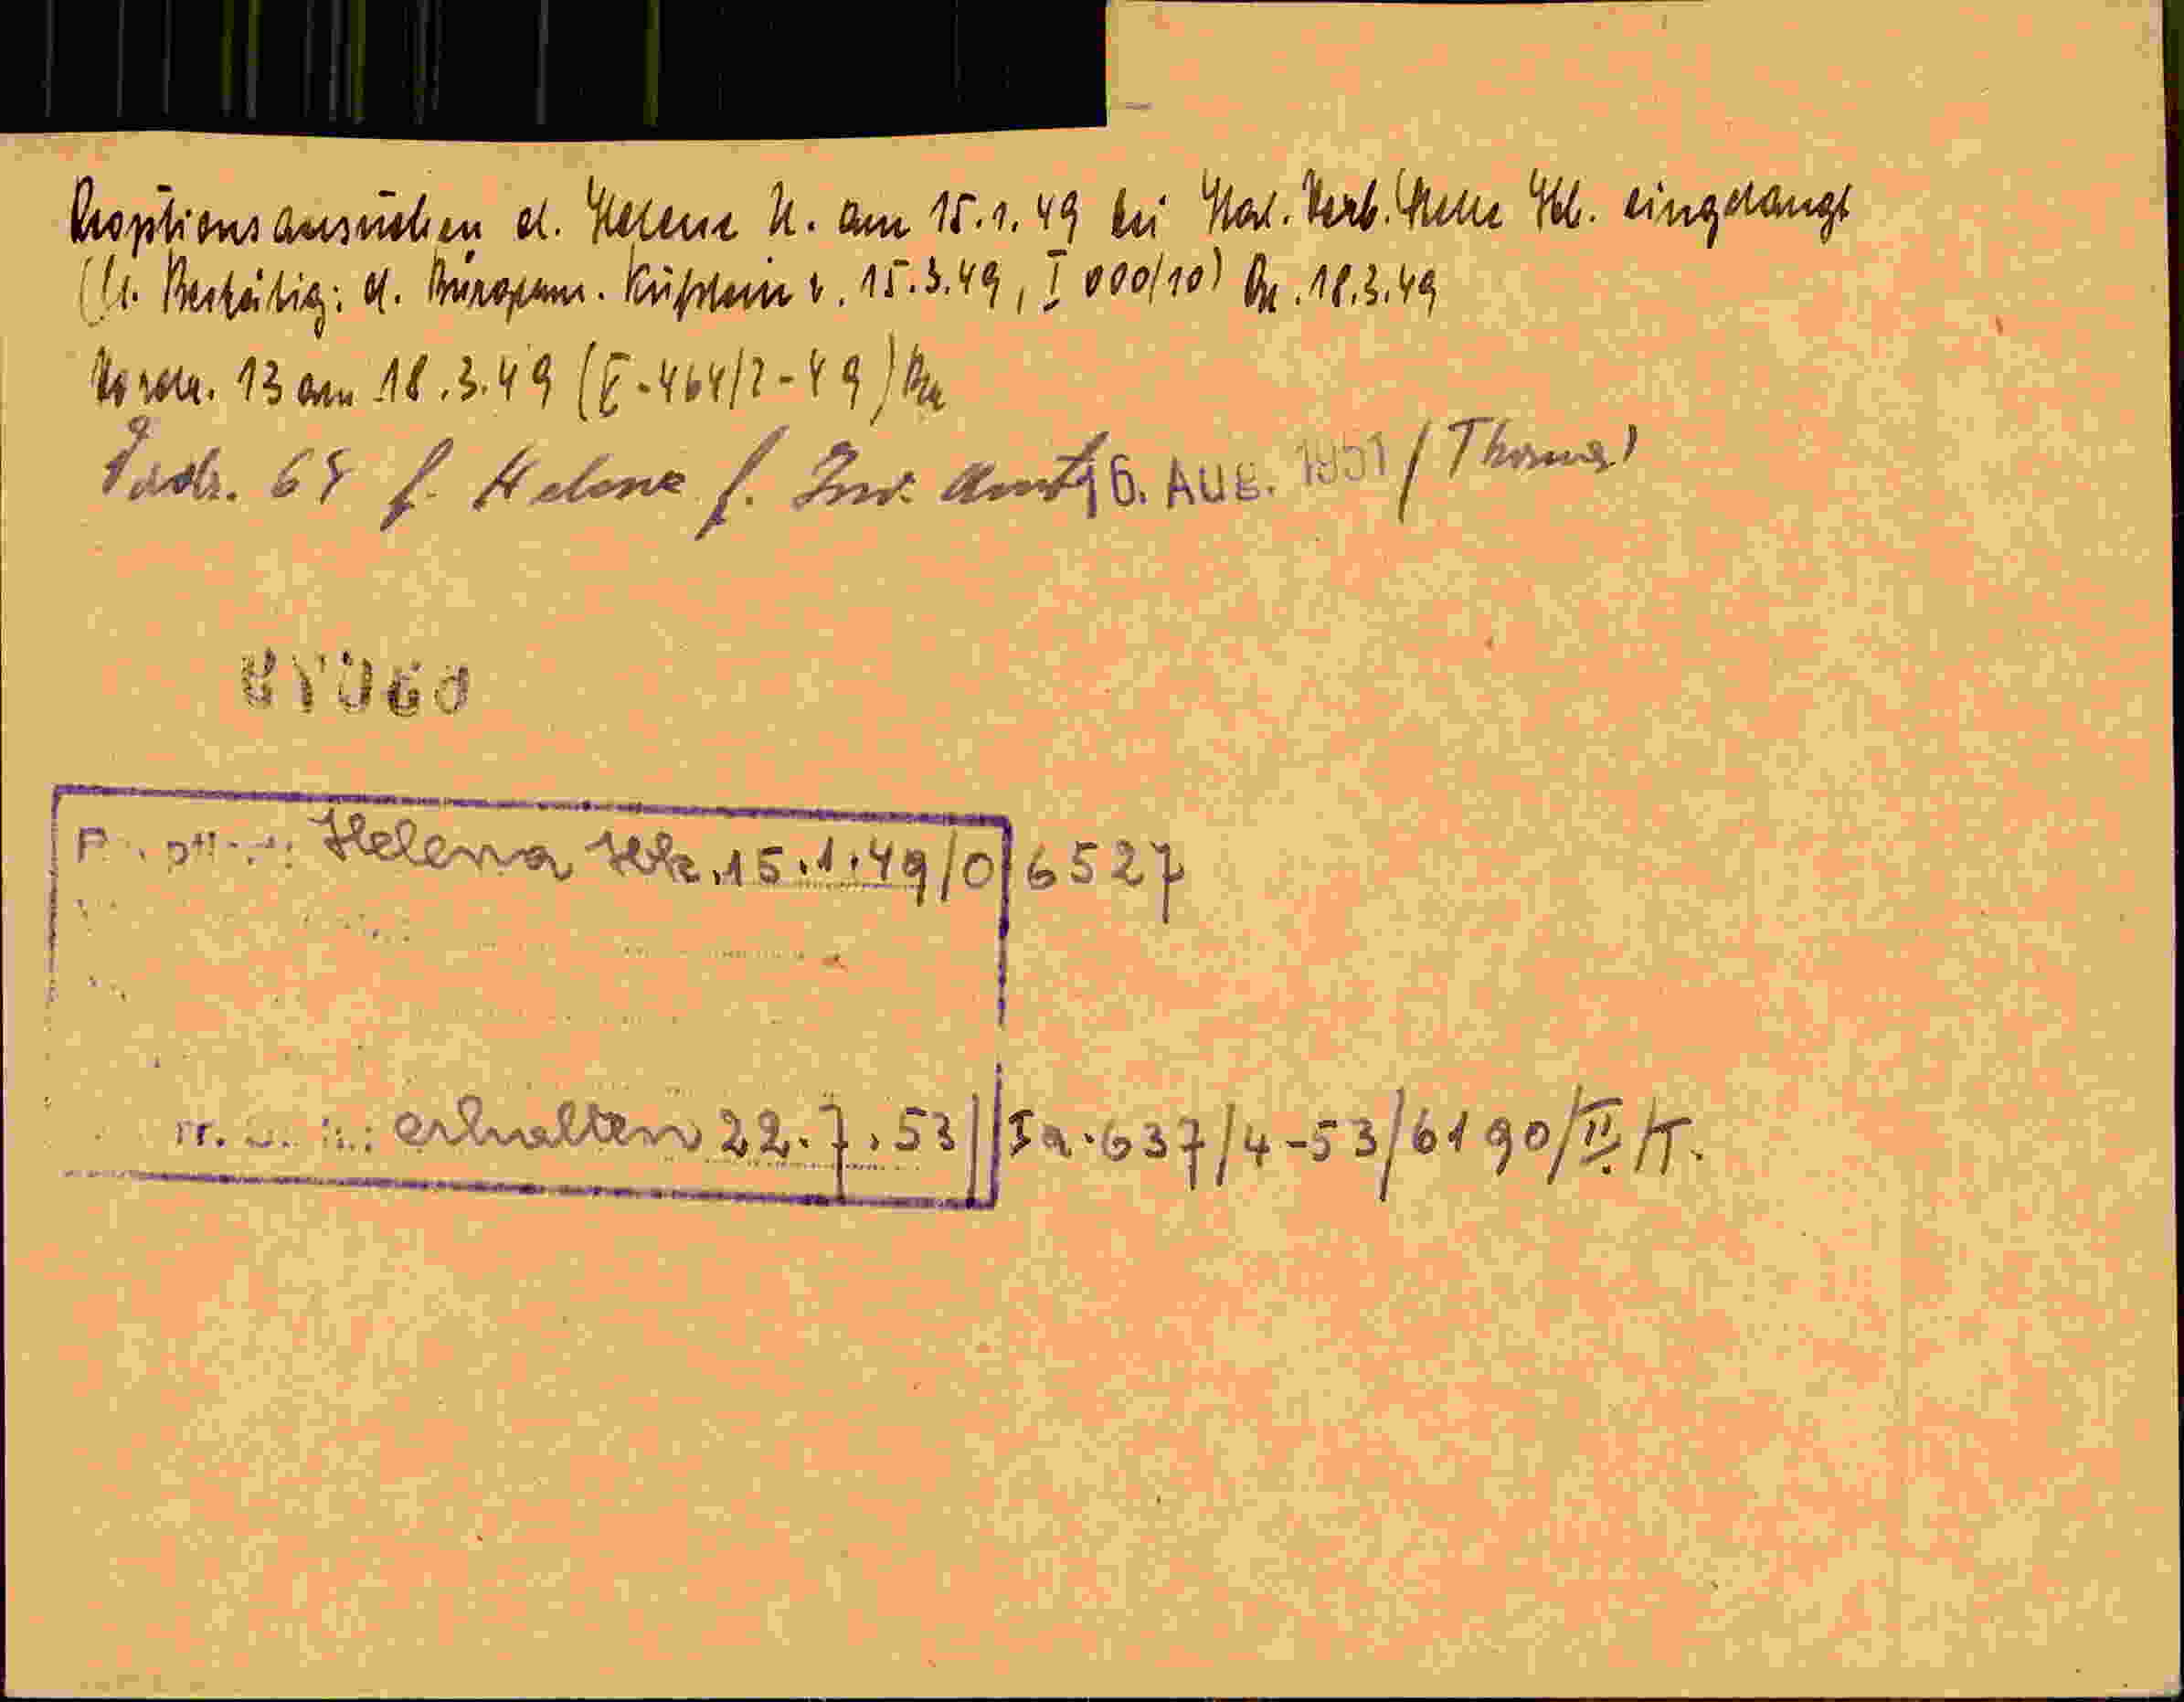 Reoptionsansuchen d. Helene U. am 15.1.49 bei Ital. Verb. Stelle Ibk. eingelangt
(lt. Bestätig: d. Bürgerm. Kufstein v. 15.3.49, I 000/10) 18.3.49
Vordr. 13 am 18.3.49 (-464/2-49)
Vordr. 68 f. Helene f. Inv. Amt 16. AUG. 1951 / Thoma)
Helena Ibk. 15.1.49/0 6527
erhalten 22.7.53 // Ia-637/4-53/6190/II/T.